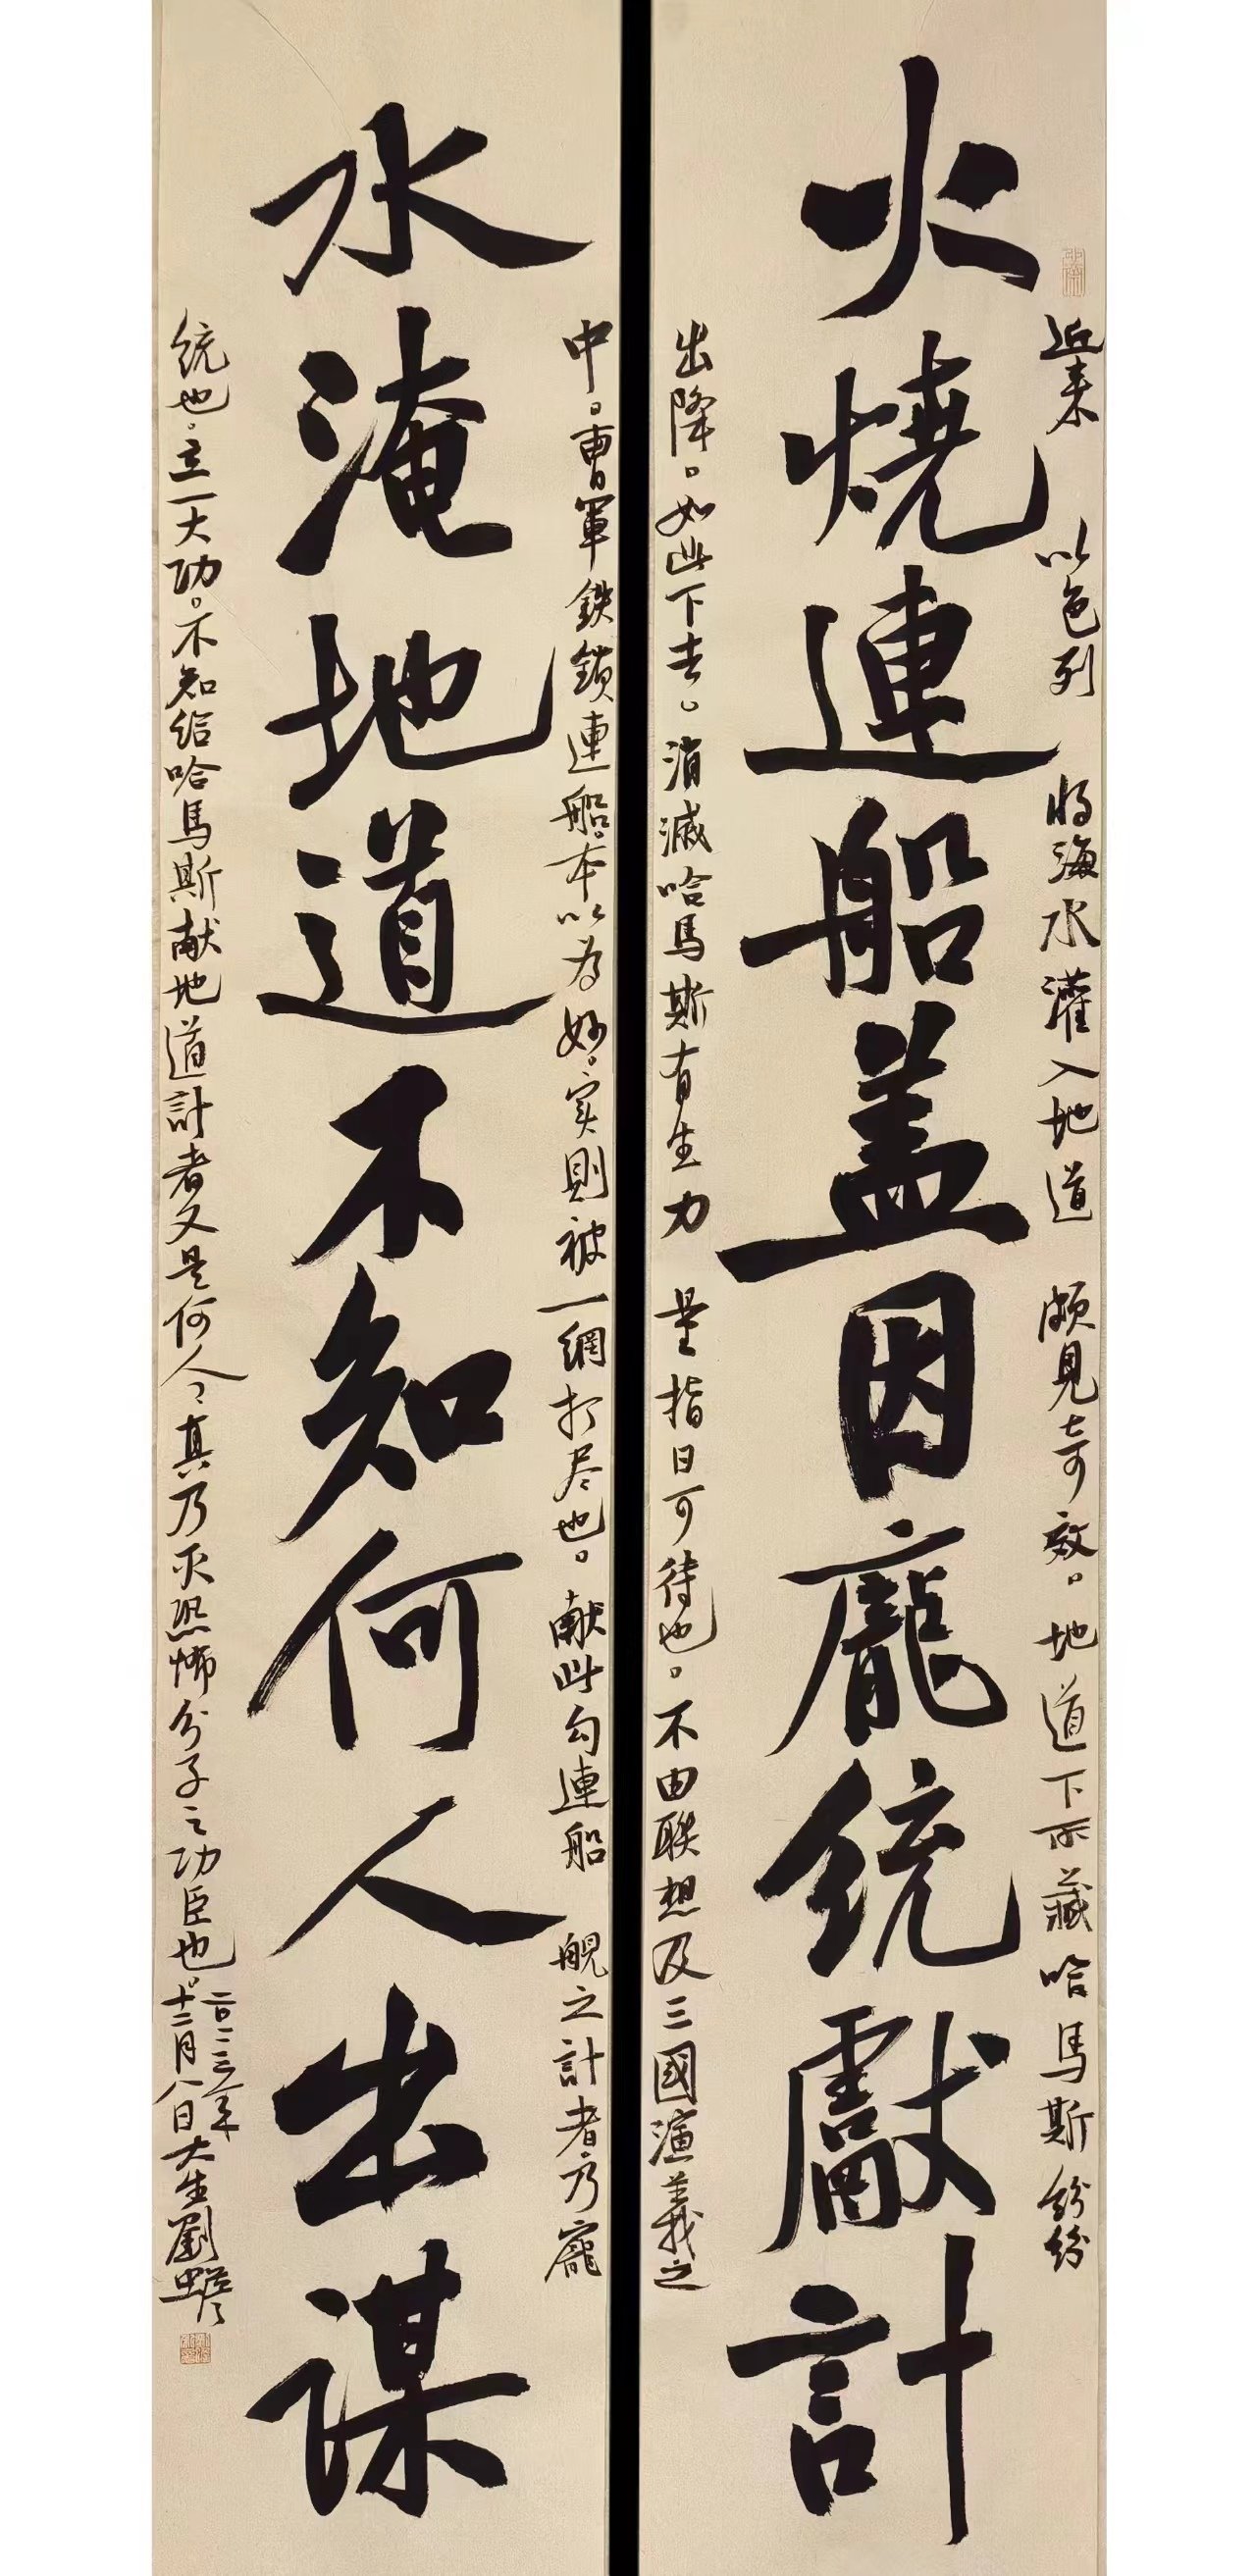 火燒連船盖因龐統獻計
水淹地道不知何人出謀
近来以色列將海水灌入地道颇見奇效。地道下所藏哈馬斯紛紛
出降。如此下去。消滅哈馬斯有生力量指日可待也。不由联想及三國演義之
中。曹軍鉄鎖連船。本以為妙。实則被一網打尽也。献此勾連船舰之計者。乃龐
统也。立一大功。不知给哈馬斯献地道計者又是何人。真乃灭恐怖分子之功臣也。
二〇二三年
十二月八日大生劉